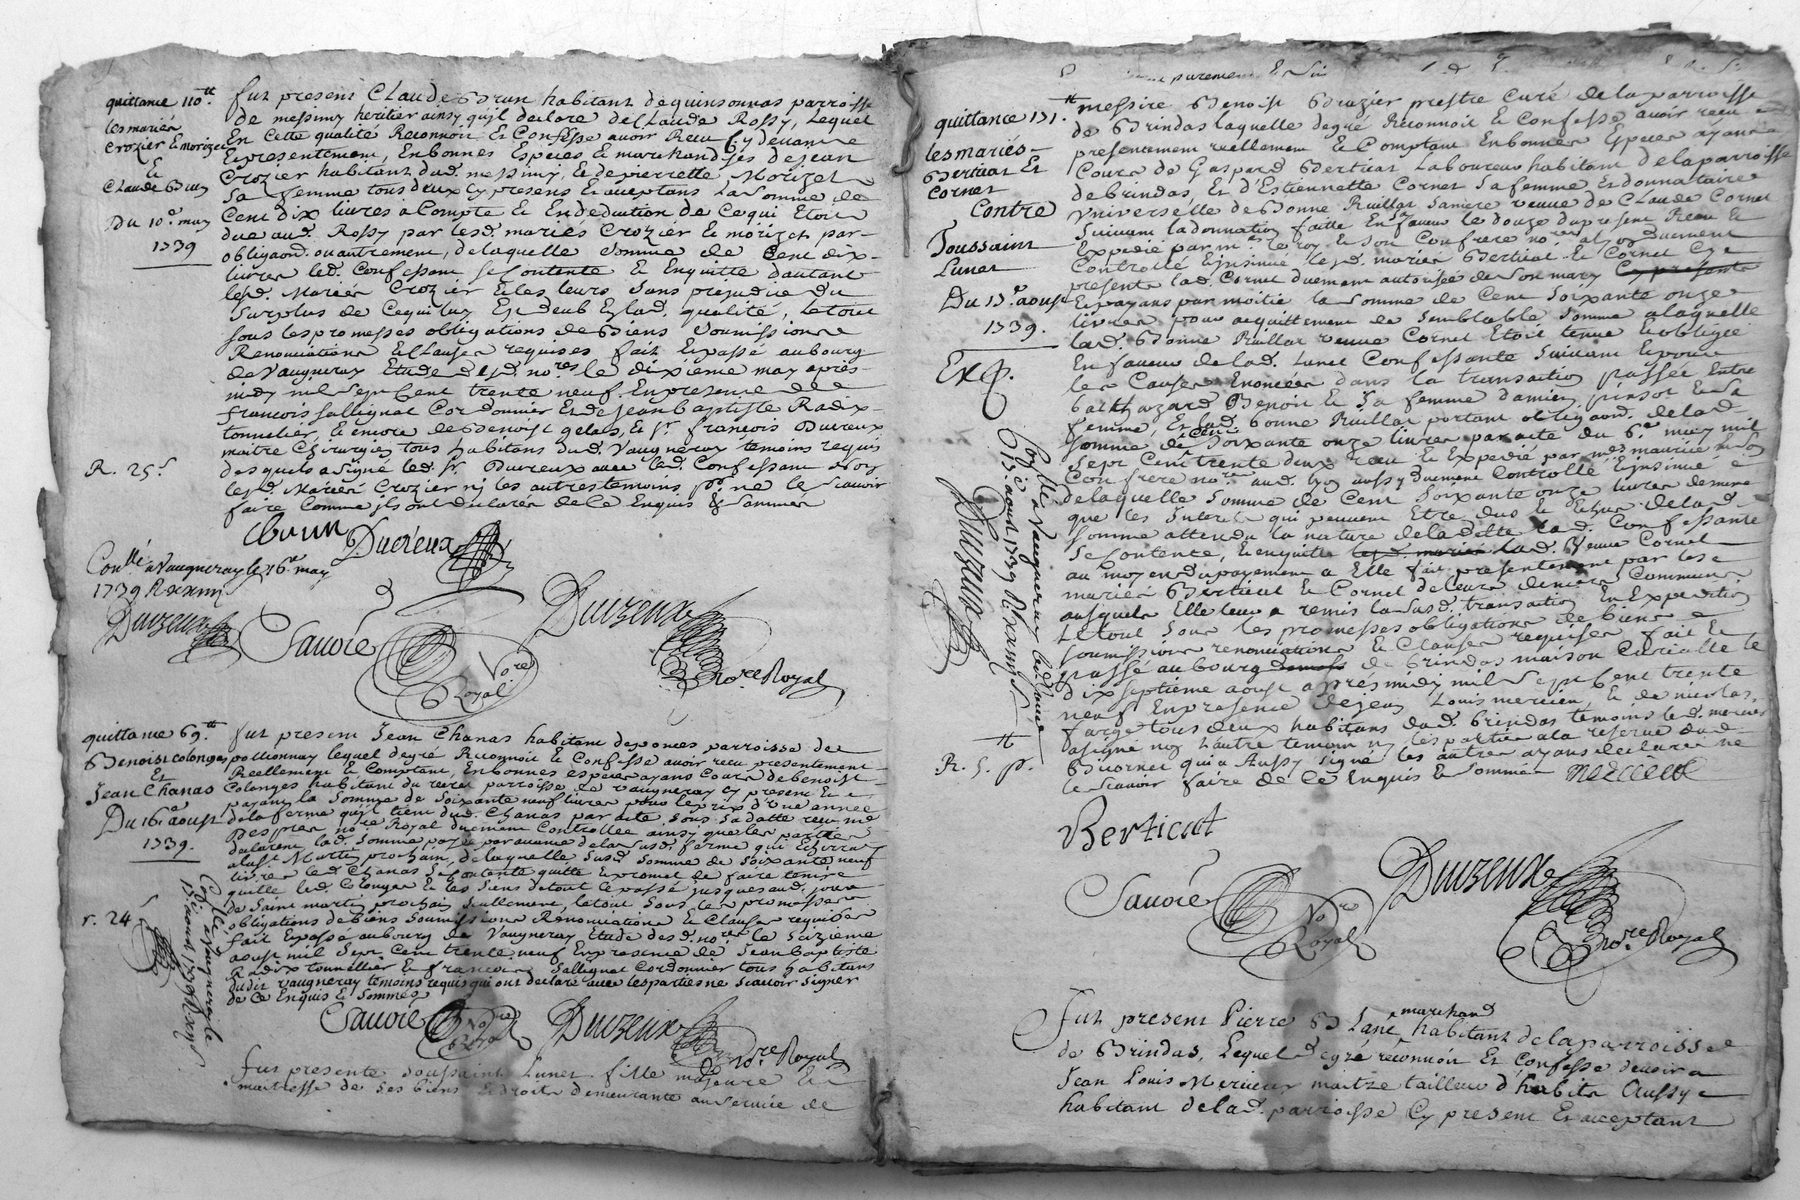 quittance 110 ₶
les mariés
Crozier & morizet
&
Claude Brun
Du 10e. may
1739
fut present Claude Brun habitant de quinsonnas parroisse
de messimy heritier ainsy qu'il declare de Claude Rossy, Lequel
En Cette qualité Reconnoit & Confesse avoir Receu Cy devant
Et presentement, En bonnes Especes & marchandises de jean
Crozier habitant dud. messimy, & de pierrette Morizet
Sa femme tous deux Cy presens & acceptans La Somme de
Cent dix livres a Compte & En deduction de Ce qui Etoit
due aud. Rossy par lesd. mariés Crozier & morizet par
obligaon. ou autrement, de laquelle Somme de Cent dix
livres led. Confessant Se Contente & En quitte d'autant
lesd. Mariés Crozier & les leurs Sans prejudice du
Surplus de Ce qui luy Est deub Esd. qualité, Le tout
sous les promesses obligations de Biens Soumissions
Renonciations & Clauses requises fait & passé au bourg
de Vaugneray Etude desd. nores. le dixieme may après
midy mil Sept Cent trente neuf En presence de
francois fallignat Cordonnier & de Jean Baptiste Radix
tonnelier, & encore de Benoist gelas, & Sr. francois Ducreux
maitre Chirurgien tous habitans dud. Vaugneray temoins requis
desquels a Signé led. Sr. Ducreux avec led. Confessant Non
lesd. Mariés Crozier ny les autres temoins pr. ne le Scavoir
faire Comme ils ont declarés de Ce Enquis & Sommés
R. 25 s.
C brun Ducreux
Conllé a Vaugneray le 16e. may
1739 R
Duizeux
Sauvoie Nore Royal
Duizeux Nore Royal
quittance 69 ₶
Benoist colonges
&
Jean Chanas
Du 16e. aoust
1739.
fut present Jean Chanas habitant des ponces parroisse de
pollionnay lequel de gré Reconnoit & Confesse avoir receu presentement
Reellement & Comptant, En bonnes especes ayans Cours de benoist
Colonges habitant du recret parroisse de vaugneray cy present &
payant la Somme de Soixante neuf livres pour le prix d'une année
de la ferme qu'il tient dud. Chanas par acte Sous Sa datte receu me
nore Royal duement Controllee ainsy que les parties
declarent lad. Somme payee par avance de la Susd. ferme qui Echerra
a la St. Martin prochain, de laquelle Susd. Somme de Soixante neuf
livres led. Chanas Se Contente quitte & promet de faire tenir
quitte led. Colonges & les Siens de tout le passé jusques aud. jour
de Saint martin prochain Seullement, le tout Sous les promesses
obligations de biens Soumissions Renonciations & Clauses requises
fait & passé au bourg de Vaugneray Etude desd. nores. le Seizieme
aoust mil Sept Cent trente neuf En presence de Jean baptiste
Radix tonnellier & francois fallignat Cordonnier tous habitans
dudit vaugneray temoins requis qui ont declaré avec les parties ne scavoir signer
de Ce Enquis & Sommés
r. 24 s
Conllé a Vaugneray le
aoust 1739
Sauvoie Nore Royal Duizeux Nore Royal
fut presente toussaint Lunet fille majeure &
maitresse de Ses biens & droits demeurante au Service de
quittance 171 ₶
les mariés
Berticat Et
Cornet
Contre
Toussaint
Lunet
Du 17e. aoust
1739.
Exp.
messire Benoist Brazier prestre Curé de la parroisse
de Brindas laquelle de gré Reconnoit & Confesse avoir receu
presentement reellement & Comptant En bonnes Especes ayans
Cours de Gaspard Berticat Laboureur habitant de la parroisse
de brindas, Et d'Estiennette Cornet Sa femme Et donnataire
Universelle de Bonne Ruillat Sa mere veuve de Claude Cornet
Suivant la donnation faitte En Sa faveur le douze du present Receu &
Expedié par me. le roy & Son Confrere nores. a Lyon duement
Controllé & insinué lesd. mariés Berticat & Cornet Cy
presents lad. Cornet duement autorisée de Son mary Cy presente
& payans par moitié la Somme de Cent Soixante onze
livres pour acquittement de Semblable Somme a laquelle
lad. Bonne Ruillat veuve Cornet Etoit tenue & obligée
En faveur de lad. Lunet Confessante Suivant & pour
les Causes Enoncées dans la transaction passée Entre
balthazard Benoit & Sa femme damien pinsot & Sa
femme, Et lad. bonne Ruillat portant obligaon. de lad.
Somme de Cent Soixante onze livres par acte du 6e. may mil
Sept Cent trente deux receu & Expedié par mes. maurice & Son
Confrere nores. aud. lyon aussy duement Controllé & insinué
de laquelle Somme de Cent Soixante onze livres de meme
que les Interets qui peuvent Etre dus de lad.
Somme attendu la nature de la dette lad. Confessante
Se Contente, & en quitte lesd. mariés lad. Veuve Cornet
au moyen du payement a Elle fait presentement par les
mariés Berticat & Cornet de leurs deniers Communs
ausquels Elle leur a remis la Susd. transaction En Expedition
Le tout Sous les promesses obligations de biens
Soumissions renonciations & Clauses requises fait &
passé au bourg de brindas maison Curialle le
dixseptieme aoust apres midy mil Sept Cent trente
neuf En presence de Jean Louis mercier, & de nicolas
farge tous deux habitans dud. brindas temoins led. mercier
a signé non l'autre temoin ny les parties a la reserve dud.
Berticat qui a Aussy Signé les autres ayans declaré ne
le Scavoir faire de Ce Enquis & Sommés mercier
Conllé a Vaugneray
aoust 1739
Duizeux
R. 5 s.
Berticat
Sauvoie Nore Royal
Duizeux Nore Royal
fut present Pierre Blanc marchand habitant de la parroisse
de Brindas, Lequel de gré reconnoit Et Confesse devoir a
Jean Louis Mercier maitre tailleur d'habits Aussy
habitant de lad. parroisse Cy present Et acceptant